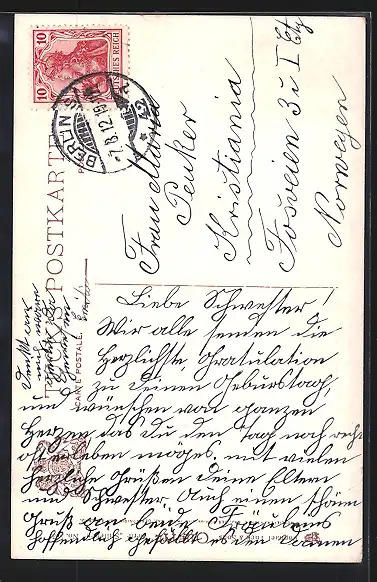 10
10
DEUTSCHES REICH
BERLIN
7.8.12.
POSTKARTE
CARTE POSTALE.
Frau Maria
Penker
Kristiania
Tosveien 3 u I Etg
Norwegen
Liebe Schwester!
Wir alle senden die
herzlichste Gratulation
zu deinen Geburstag,
und wünschen von ganzen
Herzen das du den Tag noch recht
oft erleben möges. mit vielen
herzliche Grüßen deine Eltern
und Schwester. Auch einen schönen
Gruß an beide Fräuleins
hoffendlich gefällt es den Damen